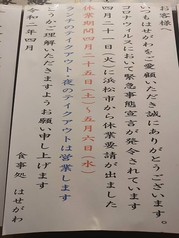 お客様
いつもはせがわをご愛顧いただき誠にありがとうございます。
コロナウィルスにおいて緊急事態宣言が発令されています
四月二十一日(火)に浜松市から休業要請が出ました
休業期間四月二十五日(土)～五月六日(水)
ランチのテイクアウト・夜のテイクアウトは営業します
どうかご理解いただきますようお願い申し上げます
令和二年四月
食事処 はせがわ